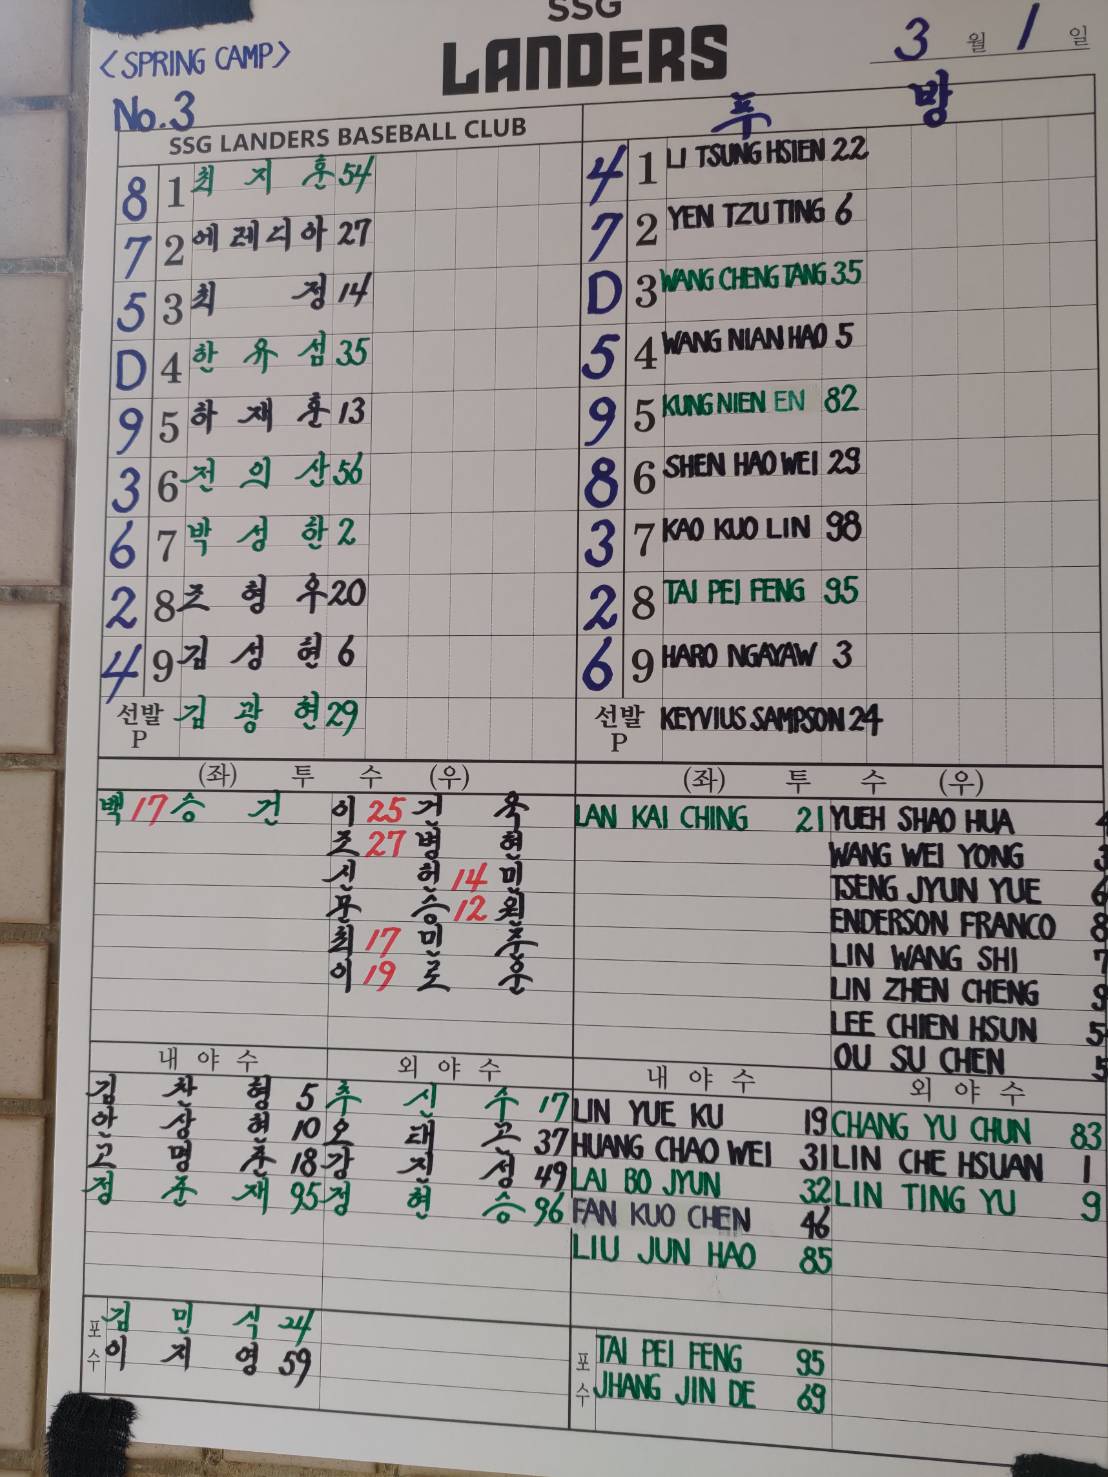 SSG
LANDERS
<SPRING CAMP>
3 월 1 일
No.3
SSG LANDERS BASEBALL CLUB
푸 방
8 1 최 지 훈 54
7 2 에 레 디 아 27
5 3 최 정 14
D 4 한 유 섬 35
9 5 하 재 훈 13
3 6 전 의 산 56
6 7 박 성 한 2
2 8 조 형 우 20
4 9 김 성 현 6
선발 P 김 광 현 29
4 1 LI TSUNG HSIEN 22
7 2 YEN TZU TING 6
D 3 WANG CHENG TANG 35
5 4 WANG NIAN HAO 5
9 5 KUNG NIEN EN 82
8 6 SHEN HAO WEI 29
3 7 KAO KUO LIN 98
2 8 TAI PEI FENG 95
6 9 HARO NGAYAW 3
선발 P KEYVIUS SAMPSON 24
(좌) 투 수 (우)
백 17 승 건
이 25 건 욱
조 27 병 현
신 헌 14 민
문 승 12 원
최 17 민 준
이 19 로 운
(좌) 투 수 (우)
LAN KAI CHING 21
YUEH SHAO HUA
WANG WEI YONG
TSENG JYUN YUE
ENDERSON FRANCO
LIN WANG SHI
LIN ZHEN CHENG
LEE CHIEN HSUN
OU SU CHEN
내 야 수
김 찬 형 5
안 상 현 10
고 명 준 18
정 준 재 95
외 야 수
추 신 수 17
오 태 곤 37
강 진 성 49
정 현 승 96
내 야 수
LIN YUE KU 19
HUANG CHAO WEI 31
LAI BO JYUN 32
FAN KUO CHEN 46
LIU JUN HAO 85
외 야 수
CHANG YU CHUN 83
LIN CHE HSUAN 1
LIN TING YU 9
포 수
김 민 식 24
이 지 영 59
포 수
TAI PEI FENG 95
JHANG JIN DE 69